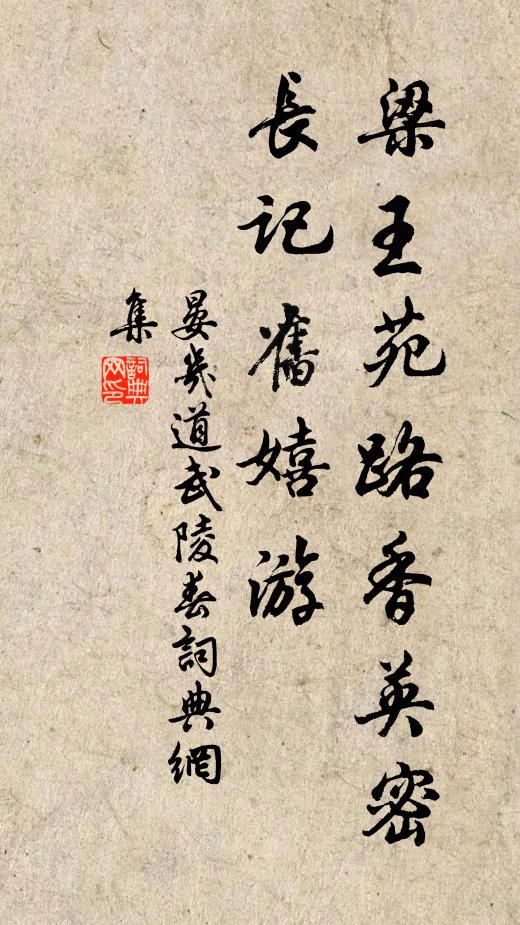 梁王苑路香英密
長記舊嬉游
晏幾道武陵春詞典網
集
詞典网印